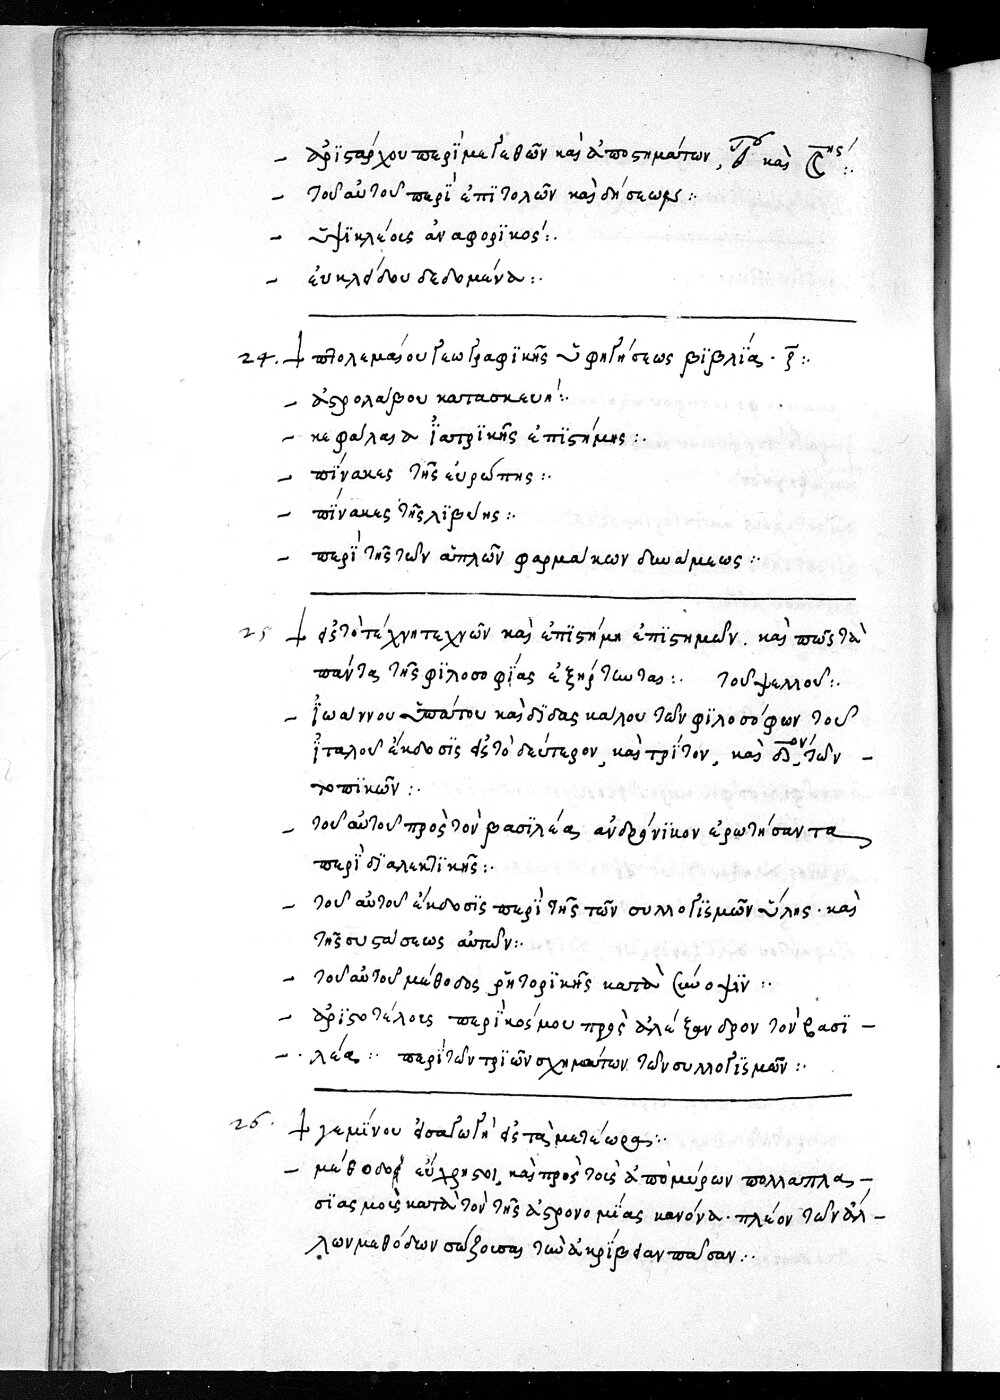 – ἀρϊστάρχου περὶ μεγεθῶν καὶ ἀποστημάτων, καὶ
– τοῦ αὐτοῦ περὶ ἐπιτολῶν καὶ δύσεων :·
– ὑψικλέους ἀναφορϊκός :·
– εὐκλείδου δεδομένα :·
24. † πτολεμαίου γεωγραφϊκῆς ὑφηγήσεως βϊβλία · η̄ :·
– ἀστρολάβου κατασκευή :·
– κεφάλαια ἰατρϊκῆς ἐπϊστήμης :·
– πΐνακες τῆς εὐρώπης :·
– πΐνακες τῆς λϊβύης :·
– περὶ τῆς τῶν ἁπλῶν φαρμάκων δυνάμεως :·
25 † εἰς τὸ τέχνη τεχνῶν καὶ ἐπϊστήμη ἐπϊστημῶν. καὶ πῶς τὰ
πάντα τῆς φϊλοσοφίας ἐξήρτωται :· τοῦ ψελλοῦ :·
– ἰωάννου ὑπάτου καὶ δϊδασκάλου τῶν φϊλοσόφων τοῦ
ἰταλοῦ ἔκδοσϊς εἰς τὸ δεύτερον, καὶ τρίτον, καὶ δ̄ον, τῶν –
τοπϊκῶν :·
– τοῦ αὐτοῦ πρὸς τὸν βασϊλέα ἀνδρόνϊκον ἐρωτήσαντα
περὶ δϊαλεκτϊκῆς :·
– τοῦ αὐτοῦ ἔκδοσϊς περὶ τῆς τῶν συλλογϊσμῶν ὕλης · καὶ
τῆς συστάσεως αὐτῶν :·
– τοῦ αὐτοῦ μέθοδος ῥητορϊκῆς κατὰ σύνοψϊν :·
– ἀρϊστοτέλους περὶ κόσμου πρὸς ἀλέξανδρον τὸν βασϊ –
– · λέα :· περὶ τῶν τρϊῶν σχημάτων τῶν συλλογϊσμῶν :·
26. † γεμίνου εἰσαγωγὴ εἰς τὰ μετέωρα :·
– μέθοδος εὔχρηστος, καὶ πρὸς τοὺς ἀπὸ μύρων πολλαπλα –
σϊασμοὺς κατὰ τὸν τῆς ἀστρονομίας κανόνα · πλέον τῶν ἀλ –
λων μεθόδων σώζουσα τὴν ἀκρίβειαν πᾶσαν :·